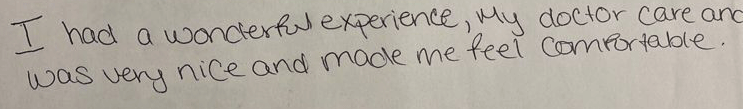 I had a wonderful experience, My doctor care and
was very nice and made me feel comfortable.